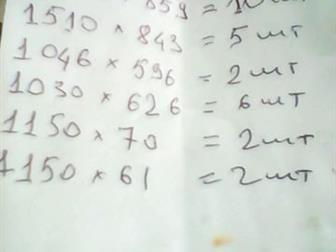 859 = 10 шт
1510 × 843 = 5 шт
1046 × 596 = 2 шт
1030 × 626 = 6 шт
1150 × 70 = 2 шт
1150 × 61 = 2 шт